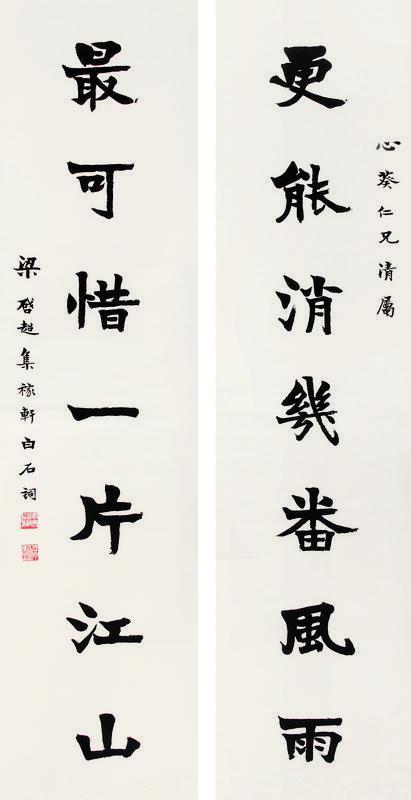 心葵仁兄清屬
更能消幾番風雨
最可惜一片江山
梁啓超集稼軒白石詞